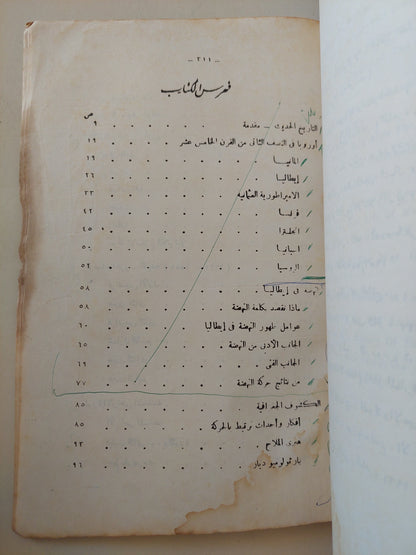 — ٢١١ —
فهرس الكتاب
ص
التاريخ الحديث — مقدمة ٩
أوروبا فى النصف الثانى من القرن الخامس عشر ١٩
المانيا ١٩
إيطاليا ٢٦
الامبراطورية العثمانية ٣٣
فرنسا ٤٢
انجلترا ٤٥
اسبانيا ٥٠
الروسيا ٥٦
النهضة فى إيطاليا ٥٨
ماذا نقصد بكلمة النهضة ٥٨
عوامل ظهور النهضة فى إيطاليا ٦٠
الجانب الأدبى من النهضة ٤٥
الجانب الفنى ٦٩
من نتائج حركة النهضة ٧٧
الكشوف الجغرافية ٨٥
أفكار وأحداث ترتبط بالحركة ٨٥
هنرى الملاح ٩٣
بارثولوميو دياز ٩٦